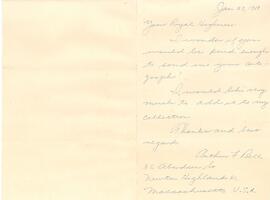 Jan 23, 1919
Your Royal Highness
I wonder if you
would be kind enough
to send me your auto-
graph?
I would like very
much to add it to my
collection
Thanks and best
regards
Arthur F Bell
32 Aberdeen
Newton Highlands
Massachusetts U.S.A.